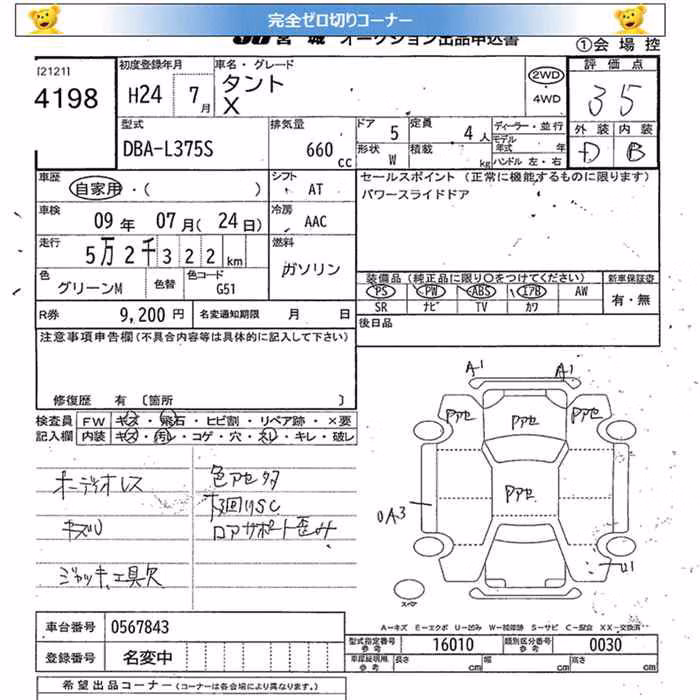 完全ゼロ切りコーナー
JU宮城 オークション出品申込書
①会場控
[2121]
4198
初度登録年月
H24 7月
車名・グレード
タント
X
2WD
4WD
評価点
3 5
外装 内装
D B
型式
DBA-L375S
排気量
660 cc
ドア 5 定員 4人
形状 W 積載 kg
ディーラー・並行
モデル年式 年
ハンドル 左・右
車歴
自家用・( )
シフト
AT
セールスポイント (正常に機能するものに限ります)
パワースライドドア
車検
09年 07月(24日)
冷房
AAC
走行
5万2千322km
燃料
ガソリン
色
グリーンM
色替
色コード
G51
装備品(純正品に限り○をつけてください)
新車保証書
PS PW ABS エアB AW
SR ナビ TV カワ
有・無
R券 9,200円
名変通知期限 月 日
後日品
注意事項申告欄(不具合内容等は具体的に記入して下さい)
修復歴 有 〔箇所 〕
検査員記入欄
FW キズ・飛石・ヒビ割・リペア跡・×要
内装 キズ・汚レ・コゲ・穴・スレ・キレ・破レ
オーディオレス
キズU
ジャッキ、工具欠
色アセ多
下廻りSC
ロアサポート歪み
A1 A1
Pアセ Pアセ Pアセ
Pアセ
A3
U1
スペア
A―キズ E―エクボ U―凹み W―補修跡 S―サビ C―腐食 XX―交換済
車台番号 0567843
登録番号 名変中
型式指定番号参考 16010
類別区分番号参考 0030
車庫証明用参考 長さ cm 幅 cm 高さ cm
希望出品コーナー(各会場により異なります。)